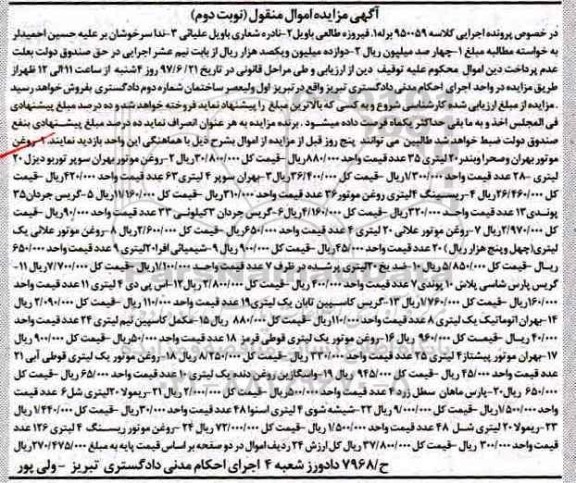 آگهی مزایده اموال منقول (نوبت دوم)
در خصوص پرونده اجرایی کلاسه ۹۵۰۰۵۹ برله ۱. فیروزه طالعی باویل ۲-نادره شعاری باویل علیائی ۳-ندا سرخوشان بر علیه حسین احمیدلر
به خواسته مطالبه مبلغ ۱-چهار صد میلیون ریال ۲-دوازده میلیون ویکصد هزار ریال از بابت نیم عشر اجرایی در حق صندوق دولت بعلت
عدم پرداخت دین اموال محکوم علیه توقیف دین از ارزیابی و طی مراحل قانونی در تاریخ ۹۷/۶/۲۱ روز ۴شنبه از ساعت ۱۱ الی ۱۲ ظهر از
طریق مزایده در واحد اجرای احکام مدنی دادگستری تبریز واقع در تبریز اول ولیعصر ساختمان شماره دوم دادگستری بفروش خواهد رسید
.مزایده از مبلغ ارزیابی شده کارشناسی شروع و به کسی که بالاترین مبلغ را پیشنهاد نماید فروخته خواهد شد و ده درصد مبلغ پیشنهادی
فی المجلس اخذ و به ما بقی حداکثر یکماه فرصت داده میشود . برنده مزایده به هر عنوان انصراف نماید ده درصد مبلغ پیشنهادی بنفع
صندوق دولت ضبط خواهد شد طالبین می توانند پنج روز قبل از مزایده از اموال بشرح ذیل با هماهنگی این واحد بازدید نمایند. ۱-روغن
موتور بهران وصحرا وبندر ۲۰ لیتری ۳۵ عدد قیمت واحد ۸۸۰/۰۰۰ریال -قیمت کل ۳۰/۸۰۰/۰۰۰ریال ۲-روغن موتور بهران سوپر توربو دیزل ۲۰
لیتری -۲۸ عدد قیمت واحد ۱/۳۰۰/۰۰۰ریال -قیمت کل ۳۶/۴۰۰/۰۰۰ریال ۳-بهران سوپر ۴ لیتری ۶۳ عدد قیمت واحد ۴۲۰/۰۰۰ریال -قیمت
کل ۲۶/۴۶۰/۰۰۰ریال ۴-ریسینگ ۴لیتری روغن موتور ۳۶ عدد قیمت واحد ۳۱۰/۰۰۰ریال -قیمت کل ۱۱/۱۶۰/۰۰۰ریال ۵-گریس جردان ۳۵
پوندی ۱۳ عدد قیمت واحد ۳۲۰/۰۰۰ریال -قیمت کل ۴/۱۶۰/۰۰۰ریال ۶-گریس جردان ۳کیلوئی ۳۳ عدد قیمت واحد ۹۰/۰۰۰ریال -قیمت
کل ۲/۹۷۰/۰۰۰ریال ۷-روغن موتور علائی ۲۰ لیتری ۴ عدد قیمت واحد ۶۵۰/۰۰۰ریال -قیمت کل ۲/۶۰۰/۰۰۰ریال ۸-روغن موتور علائی یک
لیتری(چهل وپنج هزار ریال) ۲۰ عدد قیمت واحد ۴۵/۰۰۰ریال -قیمت کل ۹۰۰/۰۰۰ ریال ۹-شیمیائی افرا ۲۰لیتری ۹ عدد قیمت واحد ۶۵۰/۰۰۰
ریال -قیمت کل ۵/۸۵۰/۰۰۰ریال ۱۰-ضد یخ ۲۰لیتری پر شده در ظرف ۷ عدد قیمت واحد ۱/۱۰۰/۰۰۰ریال -قیمت کل ۷/۷۰۰/۰۰۰ریال ۱۱-
گریس پارس شاسی پلاش ۱۰ پوندی ۷ عدد قیمت واحد ۴۰۰/۰۰۰ ریال -قیمت کل ۲/۸۰۰/۰۰۰ریال ۱۲-اس پی دی ۴ لیتری ۱۱ عدد قیمت واحد
۱۶۰/۰۰۰ریال -قیمت کل ۱/۷۶۰/۰۰۰ریال ۱۳-گریس کاسپین تابان یک لیتری ۱۹ عدد قیمت واحد ۱۱۰/۰۰۰ ریال -قیمت کل ۲/۰۹۰/۰۰۰ ریال
۱۴-بهران اتوماتیک یک لیتری ۸ عدد قیمت واحد ۱۱۰/۰۰۰ ریال -قیمت کل ۸۸۰/۰۰۰ ریال ۱۵-مکمل کاسپین نیم لیتری ۲۴ عدد قیمت واحد
۴۰/۰۰۰ ریال -قیمت کل ۹۶۰/۰۰۰ ریال ۱۶-روغن موتور یک لیتری قوطی قرمز ۱۸ عدد قیمت واحد ۵۰/۰۰۰ریال -قیمت کل ۹۰۰/۰۰۰ ریال
۱۷-بهران موتور پیشتاز ۴ لیتری ۲۵ عدد قیمت واحد ۳۳۰/۰۰۰ ریال -قیمت کل ۸/۲۵۰/۰۰۰ ریال ۱۸-روغن موتور یک لیتری قوطی آبی ۲۱
عدد قیمت واحد ۴۵/۰۰۰ ریال -قیمت کل ۹۴۵/۰۰۰ ریال ۱۹-واسگازین روغن دنده یک لیتری ۱۰ عدد قیمت واحد ۶۵/۰۰۰ ریال -قیمت کل
۶۵۰/۰۰۰ ریال ۲۰-پارس ماهان سطل زرد ۴ عدد قیمت واحد ۵۰۰/۰۰۰ریال -قیمت کل ۲/۰۰۰/۰۰۰ ریال ۲۱-ریمولا ۲۰لیتری شل ۶ عدد قیمت
واحد ۱/۵۰۰/۰۰۰ ریال -قیمت کل ۹/۰۰۰/۰۰۰ ریال ۲۲-شیشه شوی ۴ لیتری اسنوا ۴۸ عدد قیمت واحد ۳۰/۰۰۰ریال -قیمت کل ۱/۴۴۰/۰۰۰ ریال
۲۳-ریمولا ۲۰ لیتری شل ۴۸ عدد قیمت واحد ۱/۵۰۰/۰۰۰ ریال -قیمت کل ۷۲/۰۰۰/۰۰۰ ریال ۲۴-روغن موتور ریسینگ ۴ لیتری ۱۲۶ عدد
قیمت واحد ۳۰۰/۰۰۰ ریال -قیمت کل ۳۷/۸۰۰/۰۰۰ ریال کل ارزش ۲۴ ردیف اموال در دو صفحه بر اساس قیمت پایه به مبلغ ۲۷۰/۴۷۵/۰۰۰ریال
ح/۷۹۶۸ دادورز شعبه ۴ اجرای احکام مدنی دادگستری تبریز -ولی پور